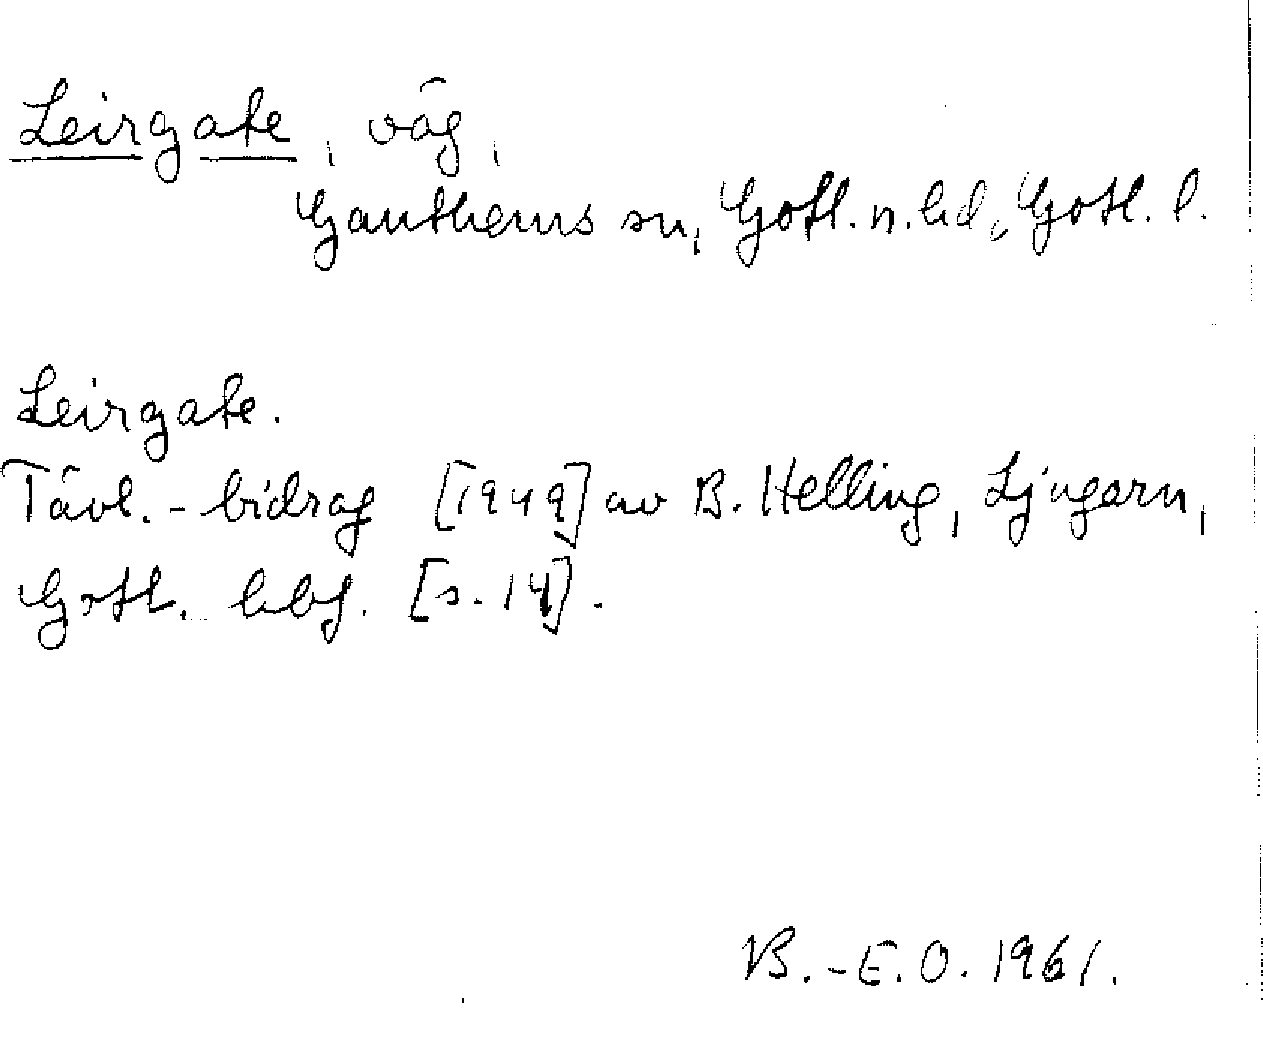 Leirgate, väg,
Ganthems sn, Gotl. n. hd, Gotl. l.
Leirgate.
Tävl.-bidrag [1949] av B. Helling, Ljugarn,
Gotl. hbf. [s. 14].
B.-E.O. 1961.